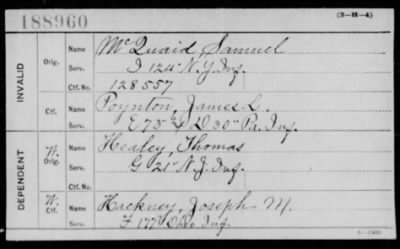 188960
(3—H—4)
INVALID
Orig.
Name McQuaid, Samuel
Serv. I 124" N.Y. Inf.
Ctf. No. 128557
Ctf.
Name Poynton, James L.
Serv. E 73" & D 30" Pa. Inf.
DEPENDENT
W. Orig.
Name Heatey, Thomas
Serv. G 21" N.J. Inf.
Ctf. No.
W. Ctf.
Name Hackney, Joseph M.
Serv. F 177" Ohio Inf.